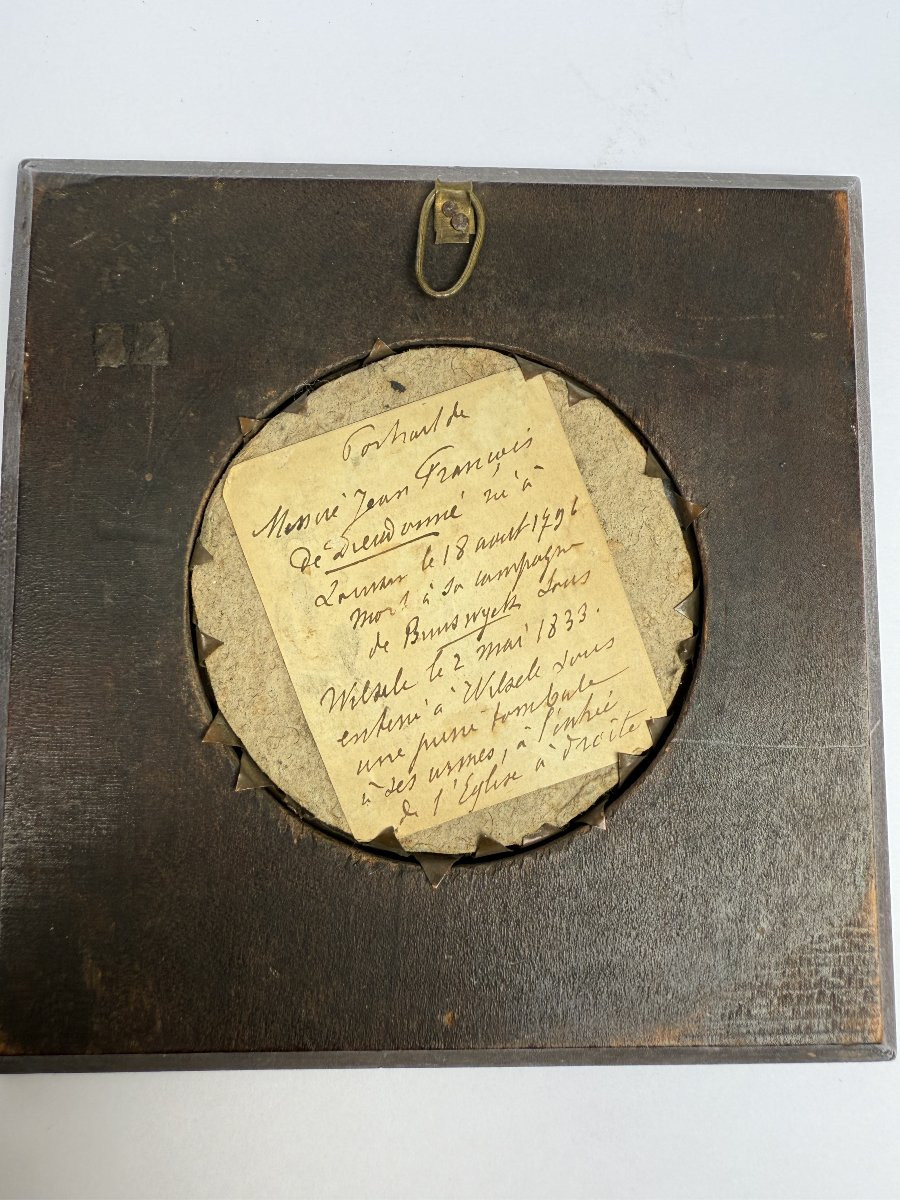 Portrait de
Messire Jean François
de Dieudonné né à
Louvain le 18 aout 1796
mort à sa campagne
de Brunswyck sous
Wilsele le 2 mai 1833.
enterré à Wilsele sous
une pierre tombale
à ses armes, à l'entrée
de l'Eglise à droite